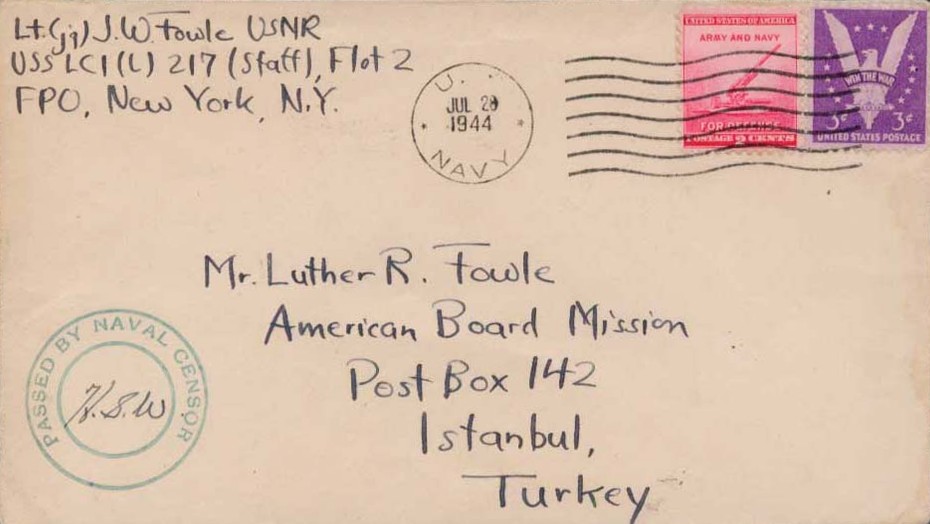 Lt.(jg) J.W. Fowle USNR
USS LCI(L) 217 (Staff), Flot 2
FPO, New York, N.Y.
U.
JUL 28
1944
NAVY
UNITED STATES OF AMERICA
ARMY AND NAVY
FOR DEFENSE
POSTAGE 2 CENTS
WIN THE WAR
3¢ 3¢
UNITED STATES POSTAGE
Mr. Luther R. Fowle
American Board Mission
Post Box 142
Istanbul,
Turkey
PASSED BY NAVAL CENSOR
H.S.W